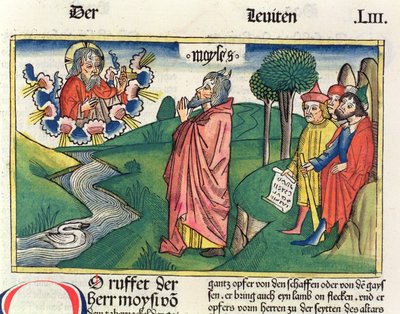 Der Leviten .LIII.
moyses
O ruffet der
herr moysi võ
dem
gantz opfer von den schaffen oder von dē gays
sen . er bring auch eyn lamb on flecken . vnd er
opfers vorm herren zu der seytten des altars